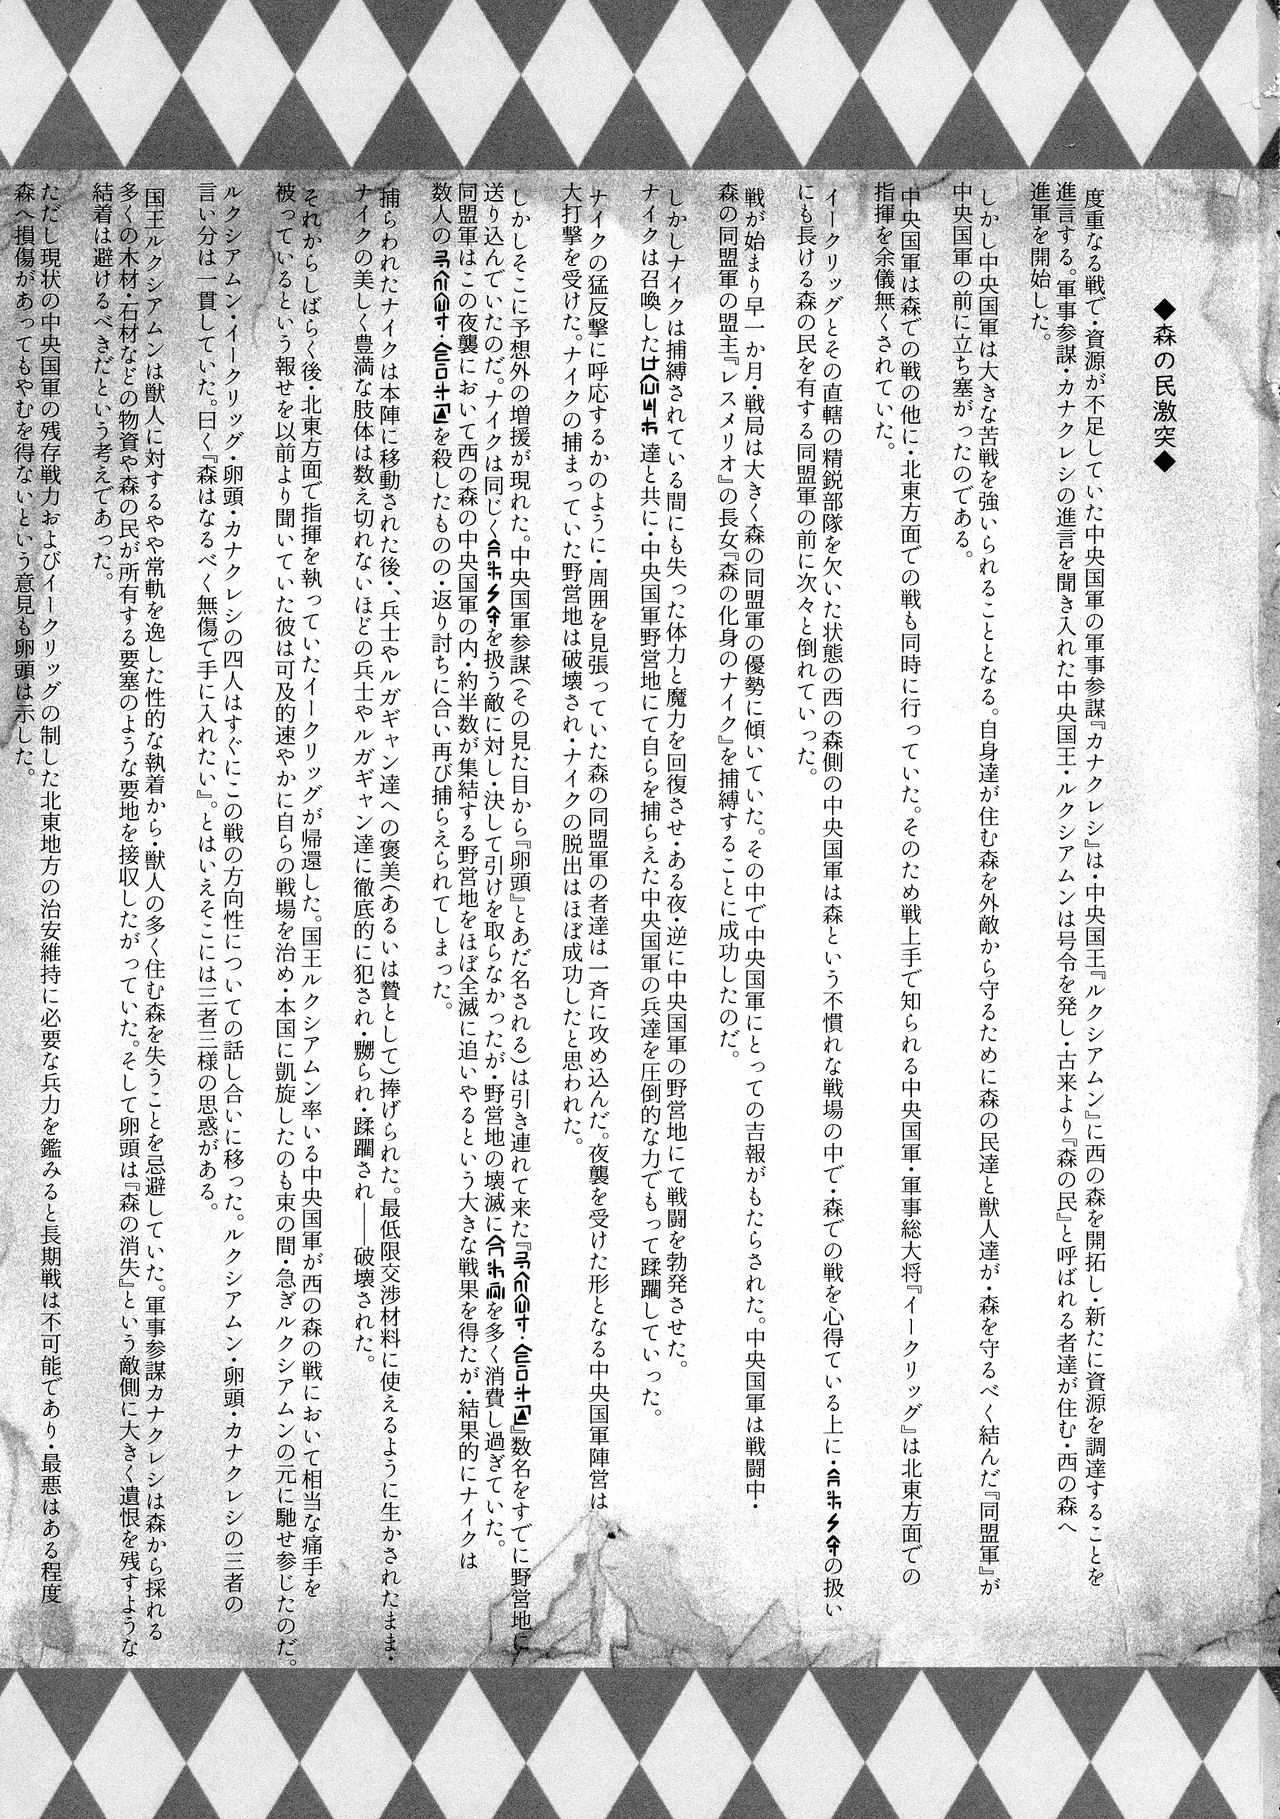 ◆森の民激突◆
度重なる戦で・資源が不足していた中央国軍の軍事参謀『カナクレシ』は・中央国王『ルクシアムン』に西の森を開拓し・新たに資源を調達することを
進言する。軍事参謀・カナクレシの進言を聞き入れた中央国王・ルクシアムンは号令を発し・古来より『森の民』と呼ばれる者達が住む・西の森へ
進軍を開始した。
しかし中央国軍は大きな苦戦を強いられることとなる。自身達が住む森を外敵から守るために森の民達と獣人達が・森を守るべく結んだ『同盟軍』が
中央国軍の前に立ち塞がったのである。
中央国軍は森での戦の他に・北東方面での戦も同時に行っていた。そのため戦上手で知られる中央国軍・軍事総大将『イークリッグ』は北東方面での
指揮を余儀無くされていた。
イークリッグとその直轄の精鋭部隊を欠いた状態の西の森側の中央国軍は森という不慣れな戦場の中で・森での戦を心得ている上に・の扱い
にも長ける森の民を有する同盟軍の前に次々と倒れていった。
戦が始まり早一か月・戦局は大きく森の同盟軍の優勢に傾いていた。その中で中央国軍にとっての吉報がもたらされた。中央国軍は戦闘中・
森の同盟軍の盟主『レスメリオ』の長女『森の化身のナイク』を捕縛することに成功したのだ。
しかしナイクは捕縛されている間にも失った体力と魔力を回復させ・ある夜・逆に中央国軍の野営地にて戦闘を勃発させた。
ナイクは召喚した達と共に・中央国軍野営地にて自らを捕らえた中央国軍の兵達を圧倒的な力でもって蹂躙していった。
ナイクの猛反撃に呼応するかのように・周囲を見張っていた森の同盟軍の者達は一斉に攻め込んだ。夜襲を受けた形となる中央国軍陣営は
大打撃を受けた。ナイクの捕まっていた野営地は破壊され・ナイクの脱出はほぼ成功したと思われた。
しかしそこに予想外の増援が現れた。中央国軍参謀(その見た目から『卵頭』とあだ名される)は引き連れて来た『・』数名をすでに野営地に
送り込んでいたのだ。ナイクは同じくを扱う敵に対し・決して引けを取らなかったが・野営地の壊滅にを多く消費し過ぎていた。
同盟軍はこの夜襲において西の森の中央国軍の内・約半数が集結する野営地をほぼ全滅に追いやるという大きな戦果を得たが・結果的にナイクは
数人の・を殺したものの・返り討ちに合い再び捕らえられてしまった。
捕らわれたナイクは本陣に移動された後・、兵士やルガギャン達への褒美(あるいは贄として)捧げられた。最低限交渉材料に使えるように生かされたまま・
ナイクの美しく豊満な肢体は数え切れないほどの兵士やルガギャン達に徹底的に犯され・嬲られ・蹂躙され――破壊された。
それからしばらく後・北東方面で指揮を執っていたイークリッグが帰還した。国王ルクシアムン率いる中央国軍が西の森の戦において相当な痛手を
被っているという報せを以前より聞いていた彼は可及的速やかに自らの戦場を治め・本国に凱旋したのも束の間・急ぎルクシアムンの元に馳せ参じたのだ。
ルクシアムン・イークリッグ・卵頭・カナクレシの四人はすぐにこの戦の方向性についての話し合いに移った。ルクシアムン・卵頭・カナクレシの三者の
言い分は一貫していた。曰く『森はなるべく無傷で手に入れたい』。とはいえそこには三者三様の思惑がある。
国王ルクシアムンは獣人に対するやや常軌を逸した性的な執着から・獣人の多く住む森を失うことを忌避していた。軍事参謀カナクレシは森から採れる
多くの木材・石材などの物資や森の民が所有する要塞のような要地を接収したがっていた。そして卵頭は『森の消失』という敵側に大きく遺恨を残すような
結着は避けるべきだという考えであった。
ただし現状の中央国軍の残存戦力およびイークリッグの制した北東地方の治安維持に必要な兵力を鑑みると長期戦は不可能であり・最悪はある程度
森へ損傷があってもやむを得ないという意見も卵頭は示した。